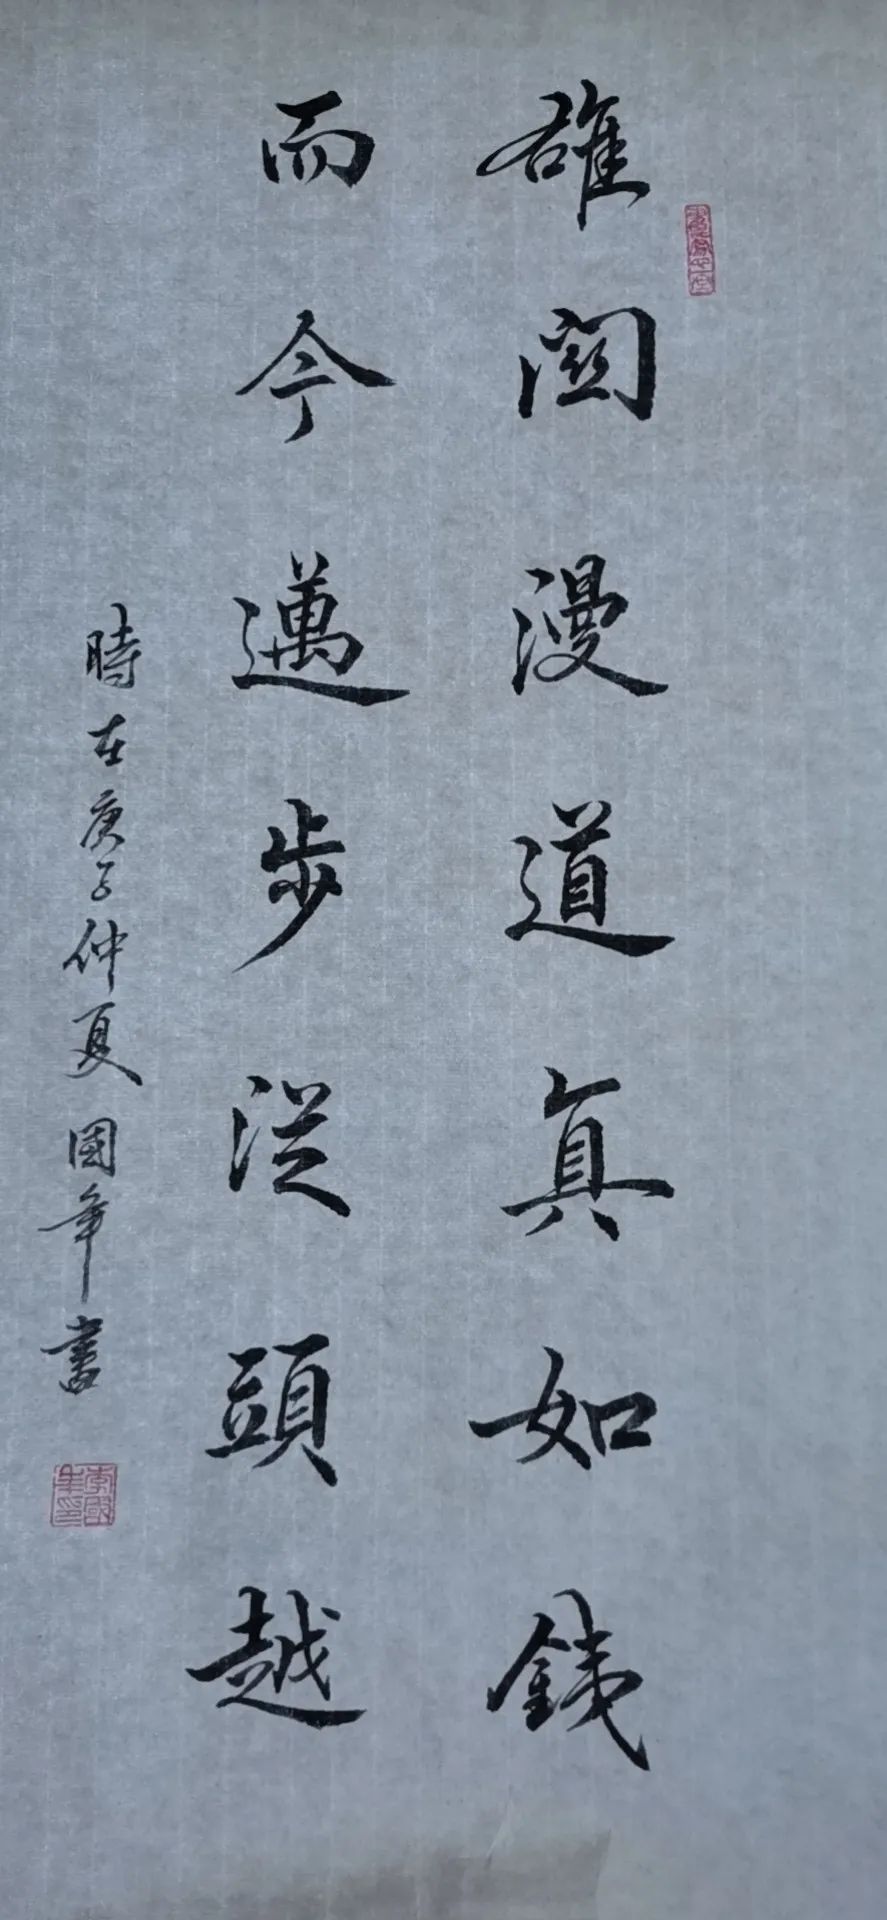 雄関漫道真如鉄
而今邁步従頭越
時在庚子仲夏國年書